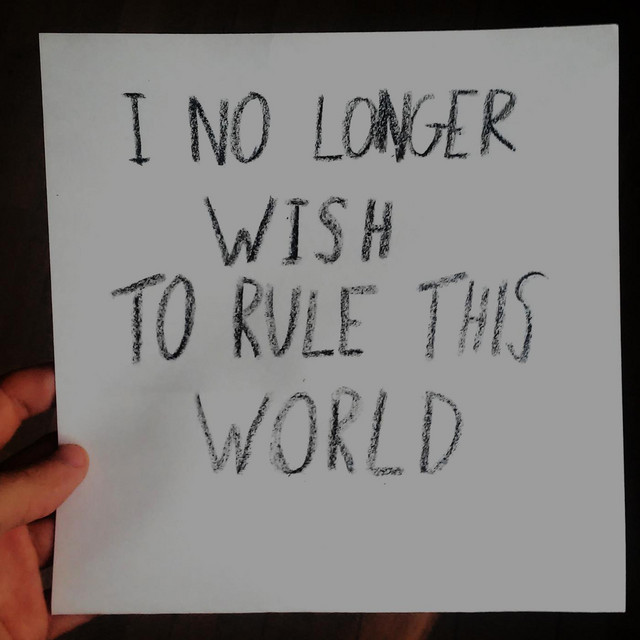 I NO LONGER
WISH
TO RULE THIS
WORLD